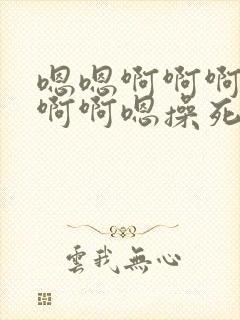 嗯嗯啊啊啊
啊啊嗯操死
雲我無心